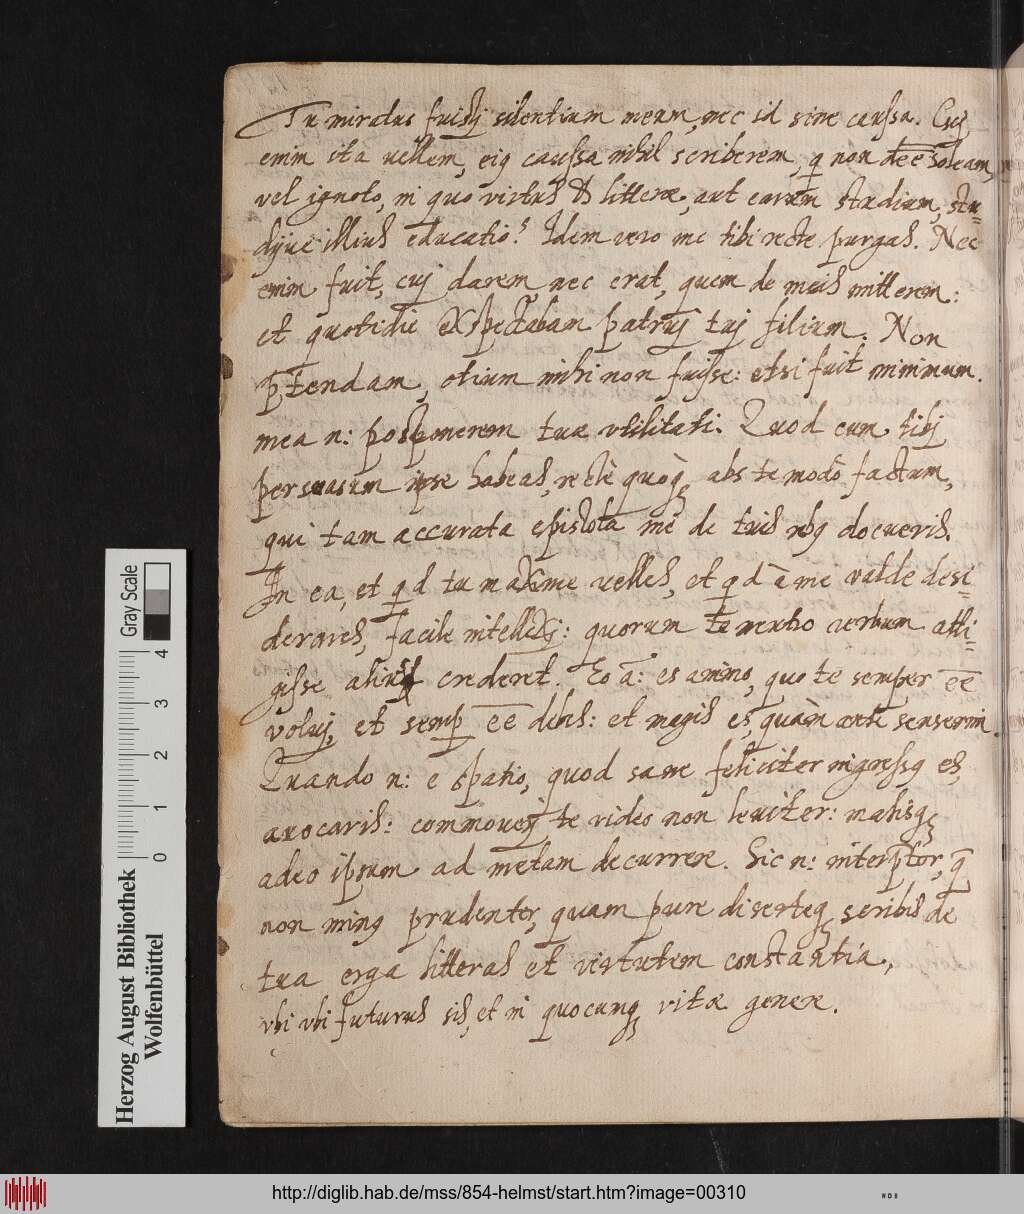 Tu miratus fuisti silentium meum, nec id sine caussa. Cuj
enim ita vellem, eiq caussa nihil scriberem, q non deesse soleam,
vel ignoto, in quo virtus & litteræ, aut earum studium, stu-
dijve illius educatio? Idem vero me tibi recte purgas. Nec
enim fuit, cuj darem nec erat, quem de meis mitterem:
et quotidie exspectabam patruj tuj filium. Non
ptendam, otium mihi non fuisse: etsi fuit minimum.
mea n: posponerem tuæ vtilitati. Quod cum tibj
persuasum ipse habeas, rectè quoq; abs te modò factum,
qui tam accurata epistola me de tuis rebq docueris.
In ea, et qd tu maxime velles, et qd à me valde desi-
derares, facile intellexj: quorum te verbo verbum atti-
gisse crederet. Eo a: es animo, quo te semper ēē
voluj, et semp ēē debes: et magis es, quàm ante senserim.
Quando n: e spatio, quod sane feliciter ingressq es,
avocaris: commouerj te video non leviter: malisq;
adeo ipsum ad metam decurrere. Sic n: interptor, q
non minq prudenter, quam pure diserteq; scribis de
tua erga litteras et virtutem constantia,
vbi vbi futurus sis, et in quocunq; vitæ genere.
Gray Scale
0 1 2 3 4
Herzog August Bibliothek
Wolfenbüttel
http://diglib.hab.de/mss/854-helmst/start.htm?image=00310